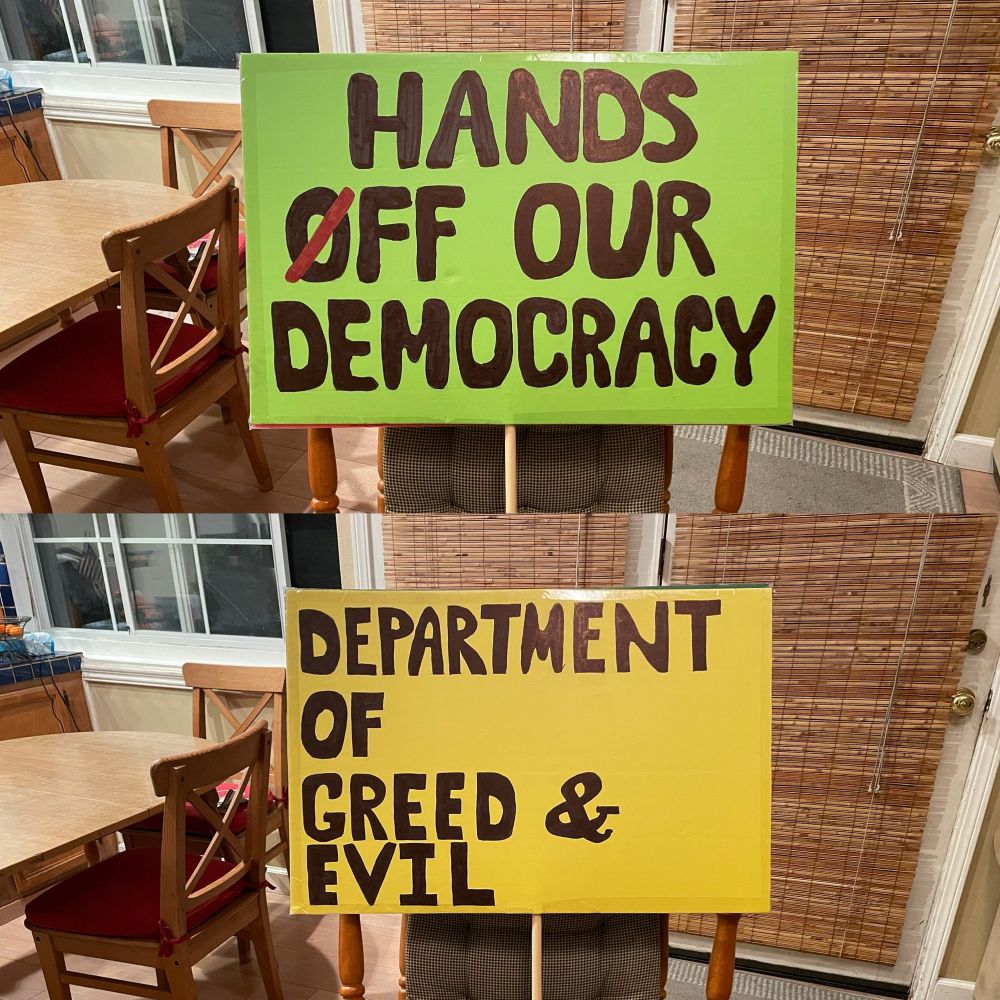 HANDS
OFF OUR
DEMOCRACY
DEPARTMENT
OF
GREED &
EVIL